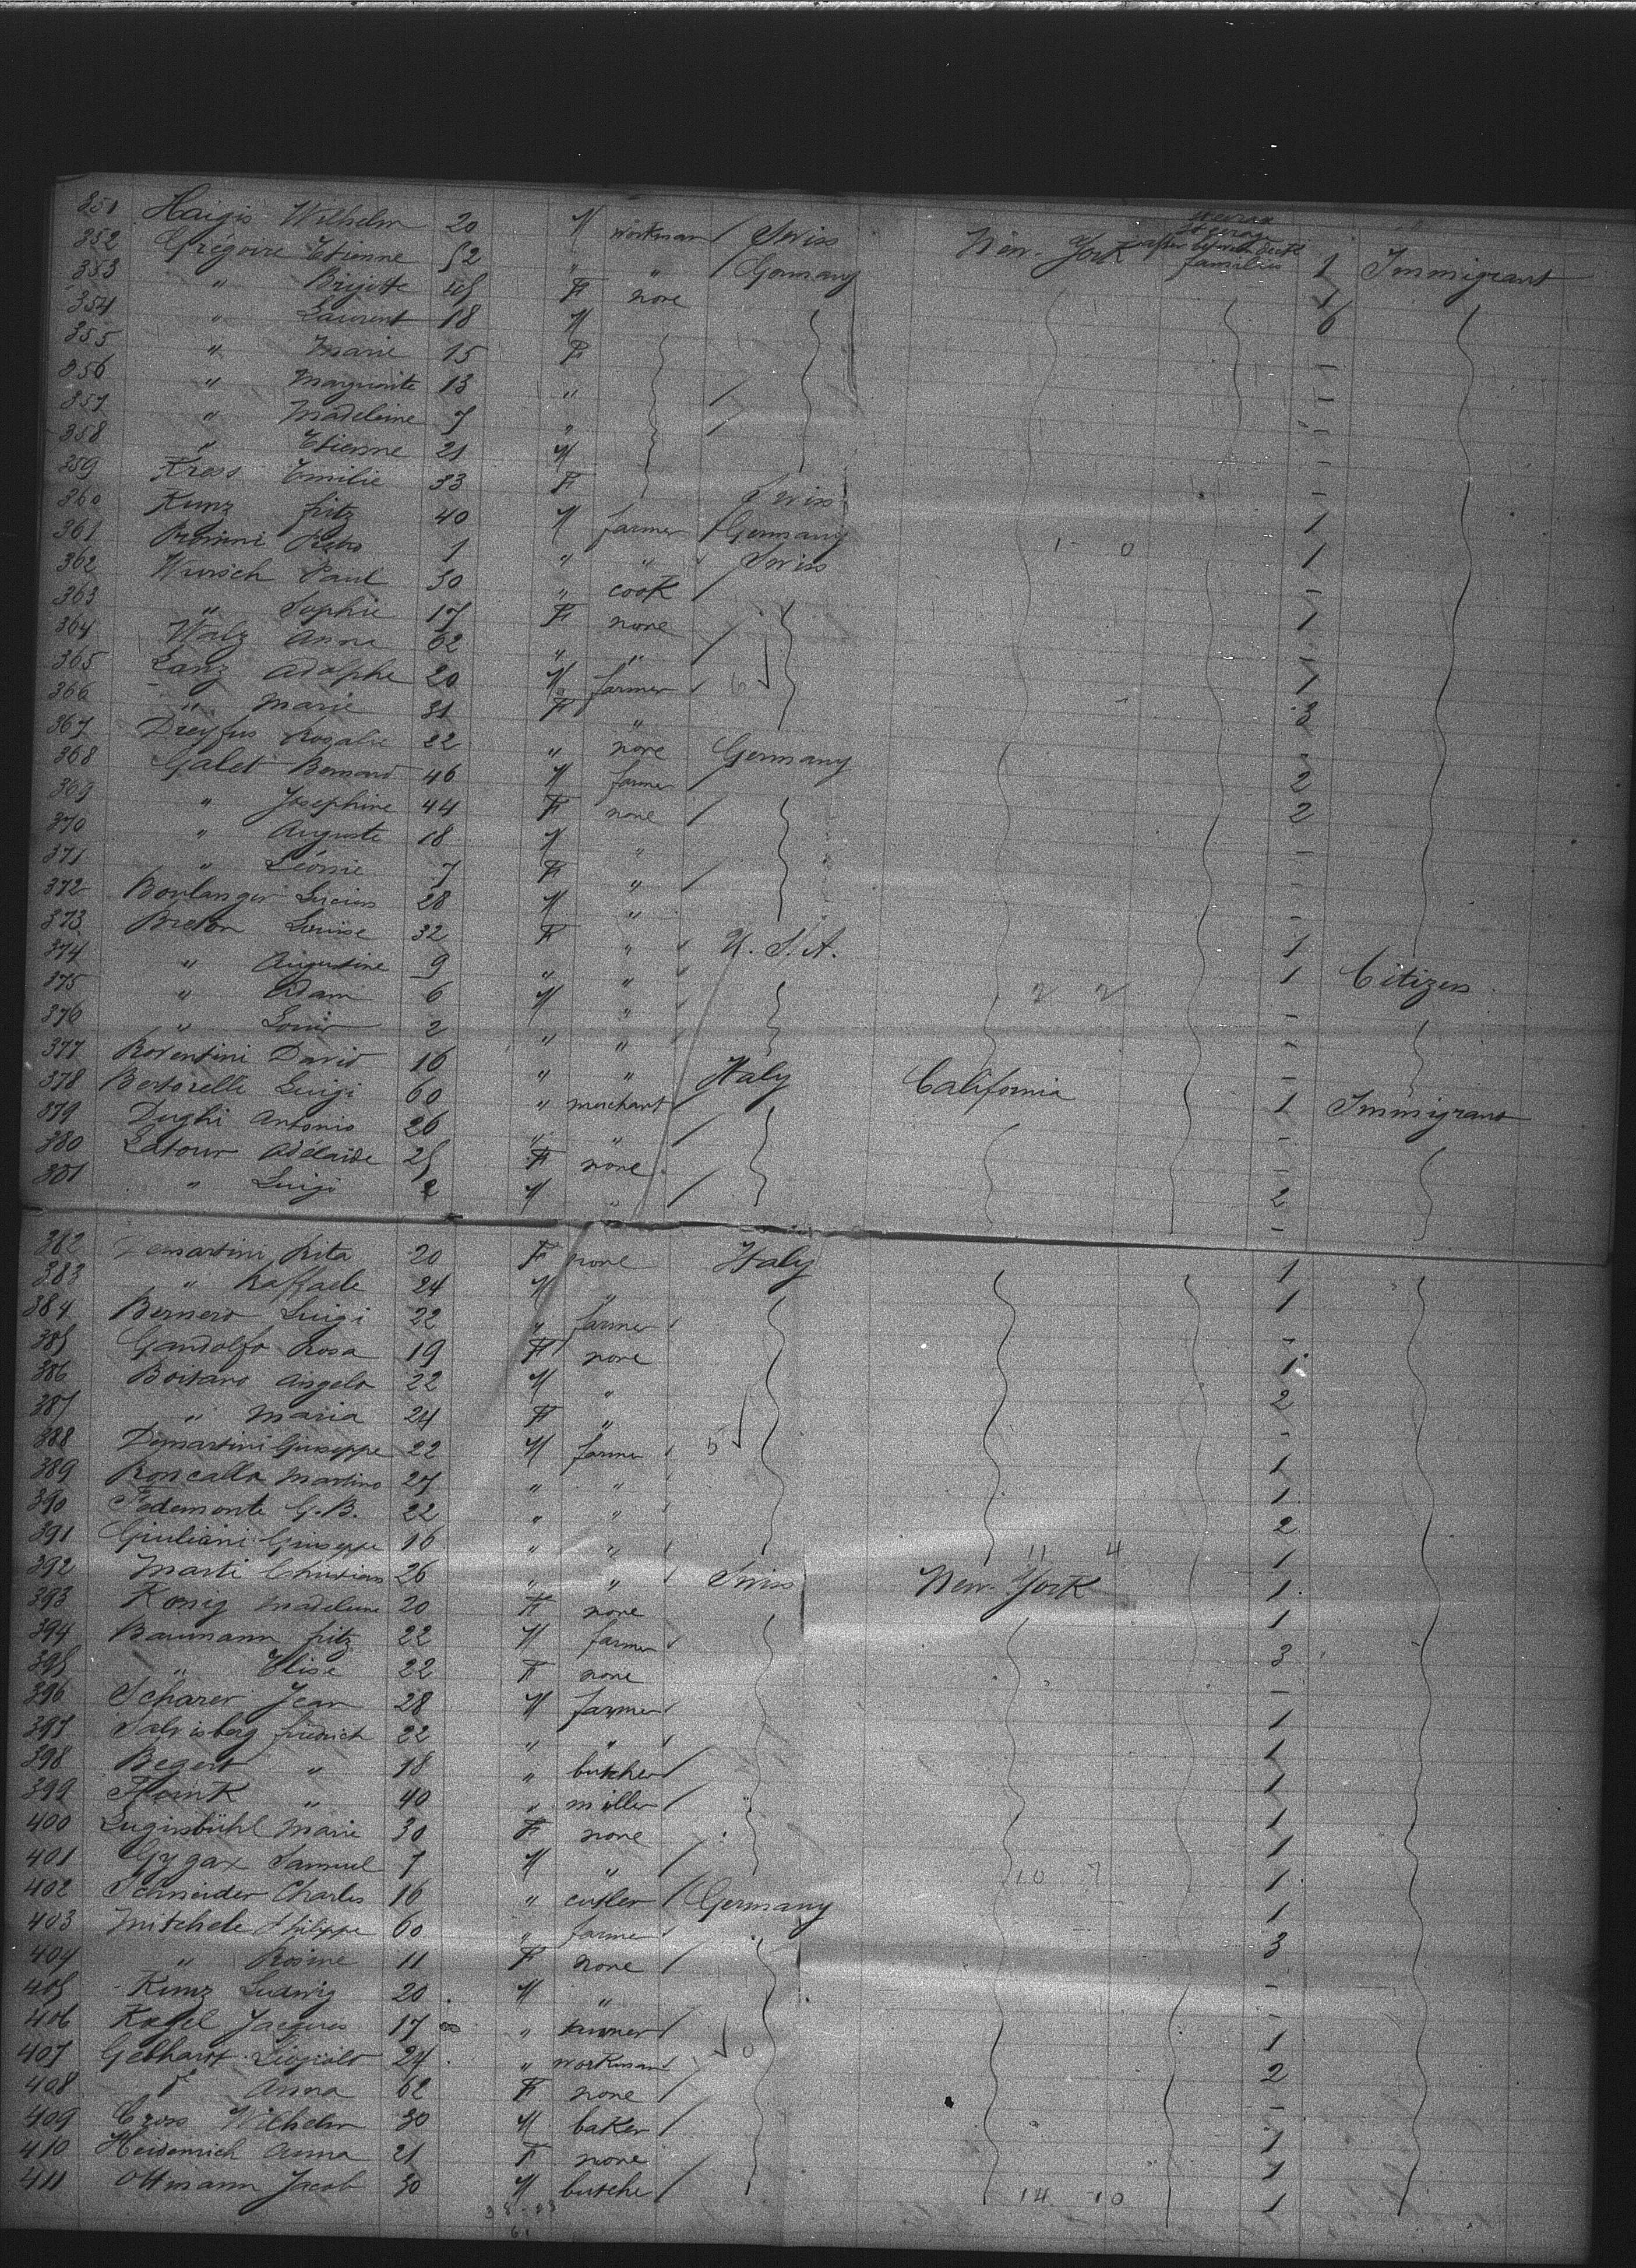 351 Haigis Wilhelm 20 M workman / Swiss New-York Steerage after between decks families 1 Immigrant
352 Grégoire Etienne 52 " " / Germany 1
353 " Brigitte 45 F none 6
354 " Laurent 18 M -
355 " Marie 15 F -
356 " Marguerite 13 " / -
357 " Madeleine 7 " / -
358 " Etienne 21 M -
359 Kross Emilie 33 F Swiss 1
360 Kunz fritz 40 M farmer / Germany 1
361 Pietro 1 " " Swiss -
362 Wursch Paul 30 " cook / 1
363 " Sophie 17 F none / -
364 Walz Anna 62 " " / 1
365 Lanz Adolphe 20 M farmer 3
366 " Marie 31 F " -
367 Dreyfus Rosalie 22 " none Germany 2
368 Galet Bernard 46 M farmer / 2
369 " Josephine 44 F none / -
370 " Auguste 18 M " -
371 " Léonie 7 F " / -
372 Boulanger Lucien 28 M " 1
373 Breton Louise 32 F " U.S.A. 1 Citizen
374 " Augustine 9 " " -
375 " Adam 6 M " 2 2 -
376 " Louis 2 " " -
377 David 16 " " Italy California 1 Immigrant
378 Bertorelli Luigi 60 " merchant / -
379 Dughi Antonio 26 " " / -
380 Latour Adélaide 25 F none 2
381 " Luigi 2 M " / -
382 Demartini Rita 20 F none Italy 1
383 " Raffaele 24 M " 1
384 Bernero Luigi 22 " farmer -
385 Gandolfo Rosa 19 F none 1
386 Boitano Angelo 22 M " 2
387 " Maria 24 F " -
388 Demartini Giuseppe 22 M farmer 1
389 Roncallo Martino 27 " " 1
390 Pedemonte G.B. 22 " " 2
391 Giuliani Giuseppe 16 " " 11 4 1
392 Marti Christian 26 " " Swiss New-York 1
393 Kong Madeleine 20 F none 1
394 Baumann fritz 22 M farmer 3
395 " Elise 22 F none -
396 Scharer Jean 28 M farmer 1
397 Salvisberg friedrich 22 " " 1
398 Begert " 18 " butcher / 1
399 " 40 " miller / 1
400 Luginbühl Marie 30 F none 1
401 Gygax Samuel 7 M " / 10 7 1
402 Schneider Charles 16 " cutler / Germany 1
403 Mitschele Philippe 60 " farmer 3
404 " Rosine 11 F none / -
405 Kunz Ludwig 20 M " -
406 Jacques 17 " tanner / 1
407 Gebhardt Léopold 24 " workman 2
408 d° Anna 62 F none / -
409 Cross Wilhelm 30 M baker / 1
410 Heidenreich Anna 21 F none 1
411 Ottmann Jacob 30 M butcher / 14 10 1